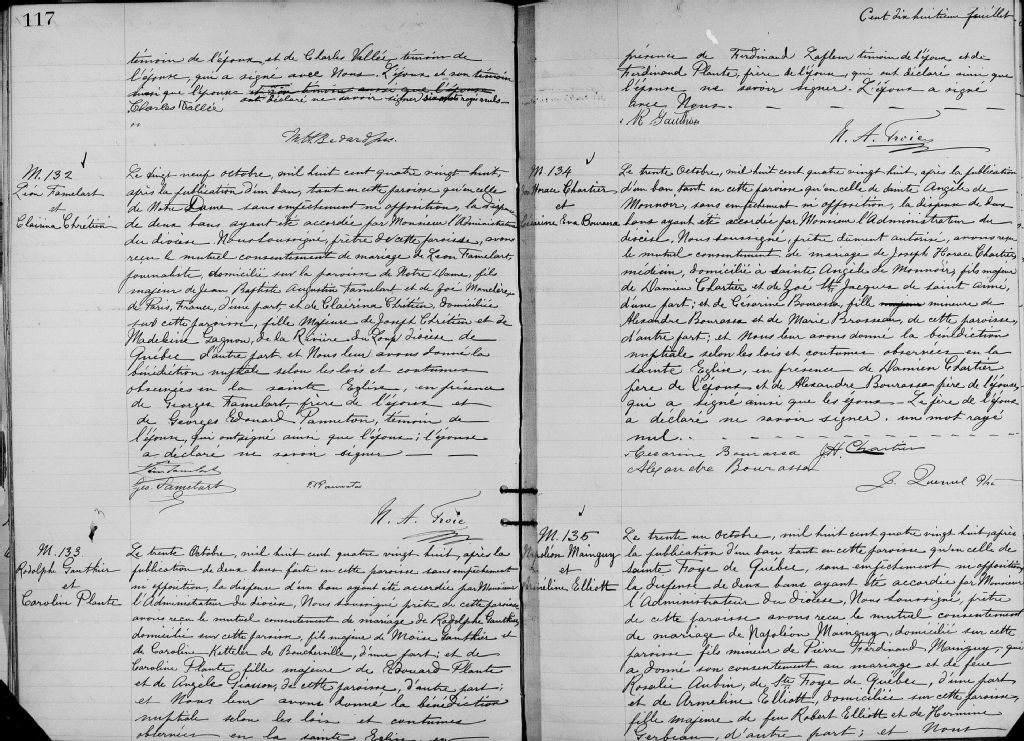 117
témoin de l'époux, et de Charles Vallée, témoin de
l'épouse, qui a signé avec Nous. L'époux et son témoin
ainsi que l'épouse
ont déclaré ne savoir signer
Charles Vallée
M. 132
Léon Famelart
et
Clairina Chrétien
Le vingt neuf octobre, mil huit cent quatre vingt huit,
après la publication d'un ban, tant en cette paroisse qu'en celle
de Notre Dame sans empêchement ni opposition, la dispense
de deux bans ayant été accordée par Monsieur l'Administrateur
du diocèse Nous soussigné, prêtre de cette paroisse, avons
reçu le mutuel consentement de mariage de Léon Famelart,
journaliste, domicilié sur la paroisse de Notre Dame, fils
majeur de Jean Baptiste Augustin Famelart et de Zoé
de Paris, France, d'une part, et de Clairina Chrétien, domiciliée
sur cette paroisse, fille Majeure de Joseph Chrétien et de
Madeleine Gagnon, de la Rivière du Loup diocèse de
Québec d'autre part, et Nous leur avons donné la
bénédiction nuptiale selon les lois et coutumes
observées en la sainte Eglise, en présence
de Georges Famelart, frère de l'époux et
de Georges Edouard Panneton, témoin de
l'époux, qui ont signé ainsi que l'époux; l'épouse
a déclaré ne savoir signer
Geo. Famelart
N. A. Troie
M. 133
Rodolph Gauthier
et
Caroline Plante
Le trente Octobre, mil huit cent quatre vingt huit, après la
publication de deux bans faite en cette paroisse sans empêchement
ni opposition, la dispense d'un ban ayant été accordée par Monsieur
l'Administrateur du diocèse, Nous soussigné prêtre de cette paroisse
avons reçu le mutuel consentement de mariage de Rodolphe Gauthier,
domicilié sur cette paroisse, fils majeur de Moïse Gauthier et
de Caroline Ketteln de Boucherville, d'une part; et de
Caroline Plante, fille majeure de Edouard Plante
et de Angèle Giasson, de cette paroisse, d'autre part;
et Nous leur avons donné la bénédiction
nuptiale selon les lois et coutumes
observées en la sainte Eglise, en
Cent dix huitième feuillet
présence de Ferdinand Lafleur témoin de l'époux et de
Ferdinand Plante, père de l'époux, qui ont déclaré ainsi que
l'épouse ne savoir signer. L'époux a signé
avec Nous.
R Gauthier
N. A. Troie
M. 134
Horace Chartier
et
Césarine Eva Bourassa
Le trente Octobre, mil huit cent quatre vingt huit, après la publication
d'un ban tant en cette paroisse qu'en celle de sainte Angèle de
Monnoir, sans empêchement ni opposition, la dispense de deux
bans ayant été accordée par Monsieur l'Administrateur du
diocèse, Nous soussigné, prêtre dûment autorisé, avons reçu
le mutuel consentement de mariage de Joseph Horace Chartier,
médecin, domicilié à sainte Angèle de Monnoir, fils majeur
de Damien Chartier et de Zoé St. Jacques de saint Aimé,
d'une part; et de Césarine Bourassa, fille mineure de
Alexandre Bourassa et de Marie Brosseau, de cette paroisse,
d'autre part; et Nous leur avons donné la bénédiction
nuptiale selon les lois et coutumes observées en la
sainte Eglise, en présence de Damien Chartier
père de l'époux et de Alexandre Bourassa père de l'épouse,
qui a signé ainsi que les époux. Le père de l'époux
a déclaré ne savoir signer. un mot rayé
nul.
Cesarine Bourassa J H. Chartier
Alexandre Bourassa
M. 135
Napoléon Mainguy
et
Armeline Elliott
Le trente un Octobre, mil huit cent quatre vingt huit, après
la publication d'un ban tant en cette paroisse qu'en celle de
Sainte Foye de Québec, sans empêchement ni opposition,
la dispense de deux bans ayant été accordée par Monsieur
l'Administrateur du Diocèse, Nous soussigné, prêtre
de cette paroisse avons reçu le mutuel consentement
de mariage de Napoléon Mainguy, domicilié sur cette
paroisse fils mineur de Pierre Ferdinand Mainguy, qui
a donné son consentement au mariage et de feue
Rosalie Aubin, de Ste Foye de Québec, d'une part
et de Armeline Elliott, domiciliée sur cette paroisse,
fille majeure de feu Robert Elliott et de Hermine
Gerbeau, d'autre part; et Nous